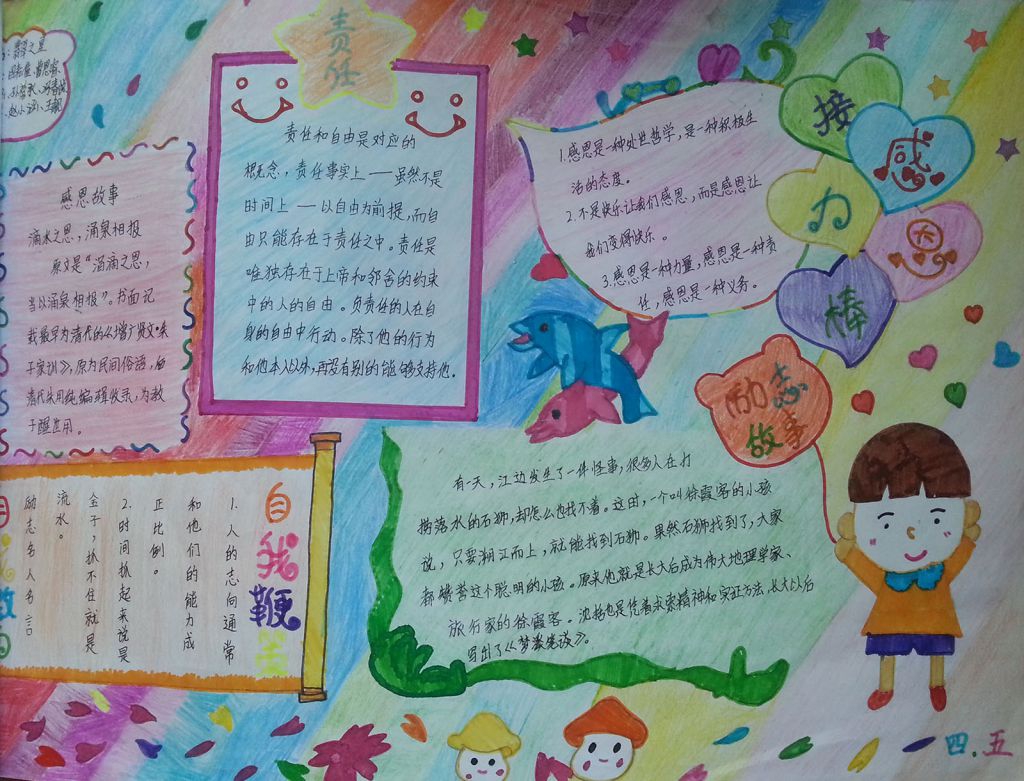 责任
责任和自由是对应的
概念，责任事实上——虽然不是
时间上——以自由为前提，而自
由只能存在于责任之中。责任是
唯独存在于上帝和邻舍的约束
中的人的自由。负责任的人在自
身的自由中行动。除了他的行为
和他本人以外，再没有别的能够支持他。
感恩故事
滴水之恩，涌泉相报
原文是“滔滴之恩，
当以涌泉相报”。书面记
载最早为清代的《增广贤文·朱
子家训》，原为民间俗语，由
清代朱用纯编辑收录，为教
子醒世用。
1.感恩是一种处世哲学，是一种积极生
活的态度。
2.不是快乐让我们感恩，而是感恩让
我们变得快乐。
3.感恩是一种力量，感恩是一种责
任，感恩是一种义务。
接
力
棒
感
恩
励志
故事
有一天，江边发生了一件怪事，很多人在打
捞落水的石狮，却怎么也找不着。这时，一个叫徐霞客的小孩
说，只要溯江而上，就能找到石狮。果然石狮找到了，大家
都赞赏这个聪明的小孩。原来他就是长大后成为伟大地理学家、
旅行家的徐霞客。沈括也是凭着求索精神和实证方法长大以后
写出了《梦溪笔谈》。
自我鞭
1.人的志向通常
和他们的能力成
正比例。
2.时间抓起来说是
金子，抓不住就是
流水。
励志名人名言
四.五